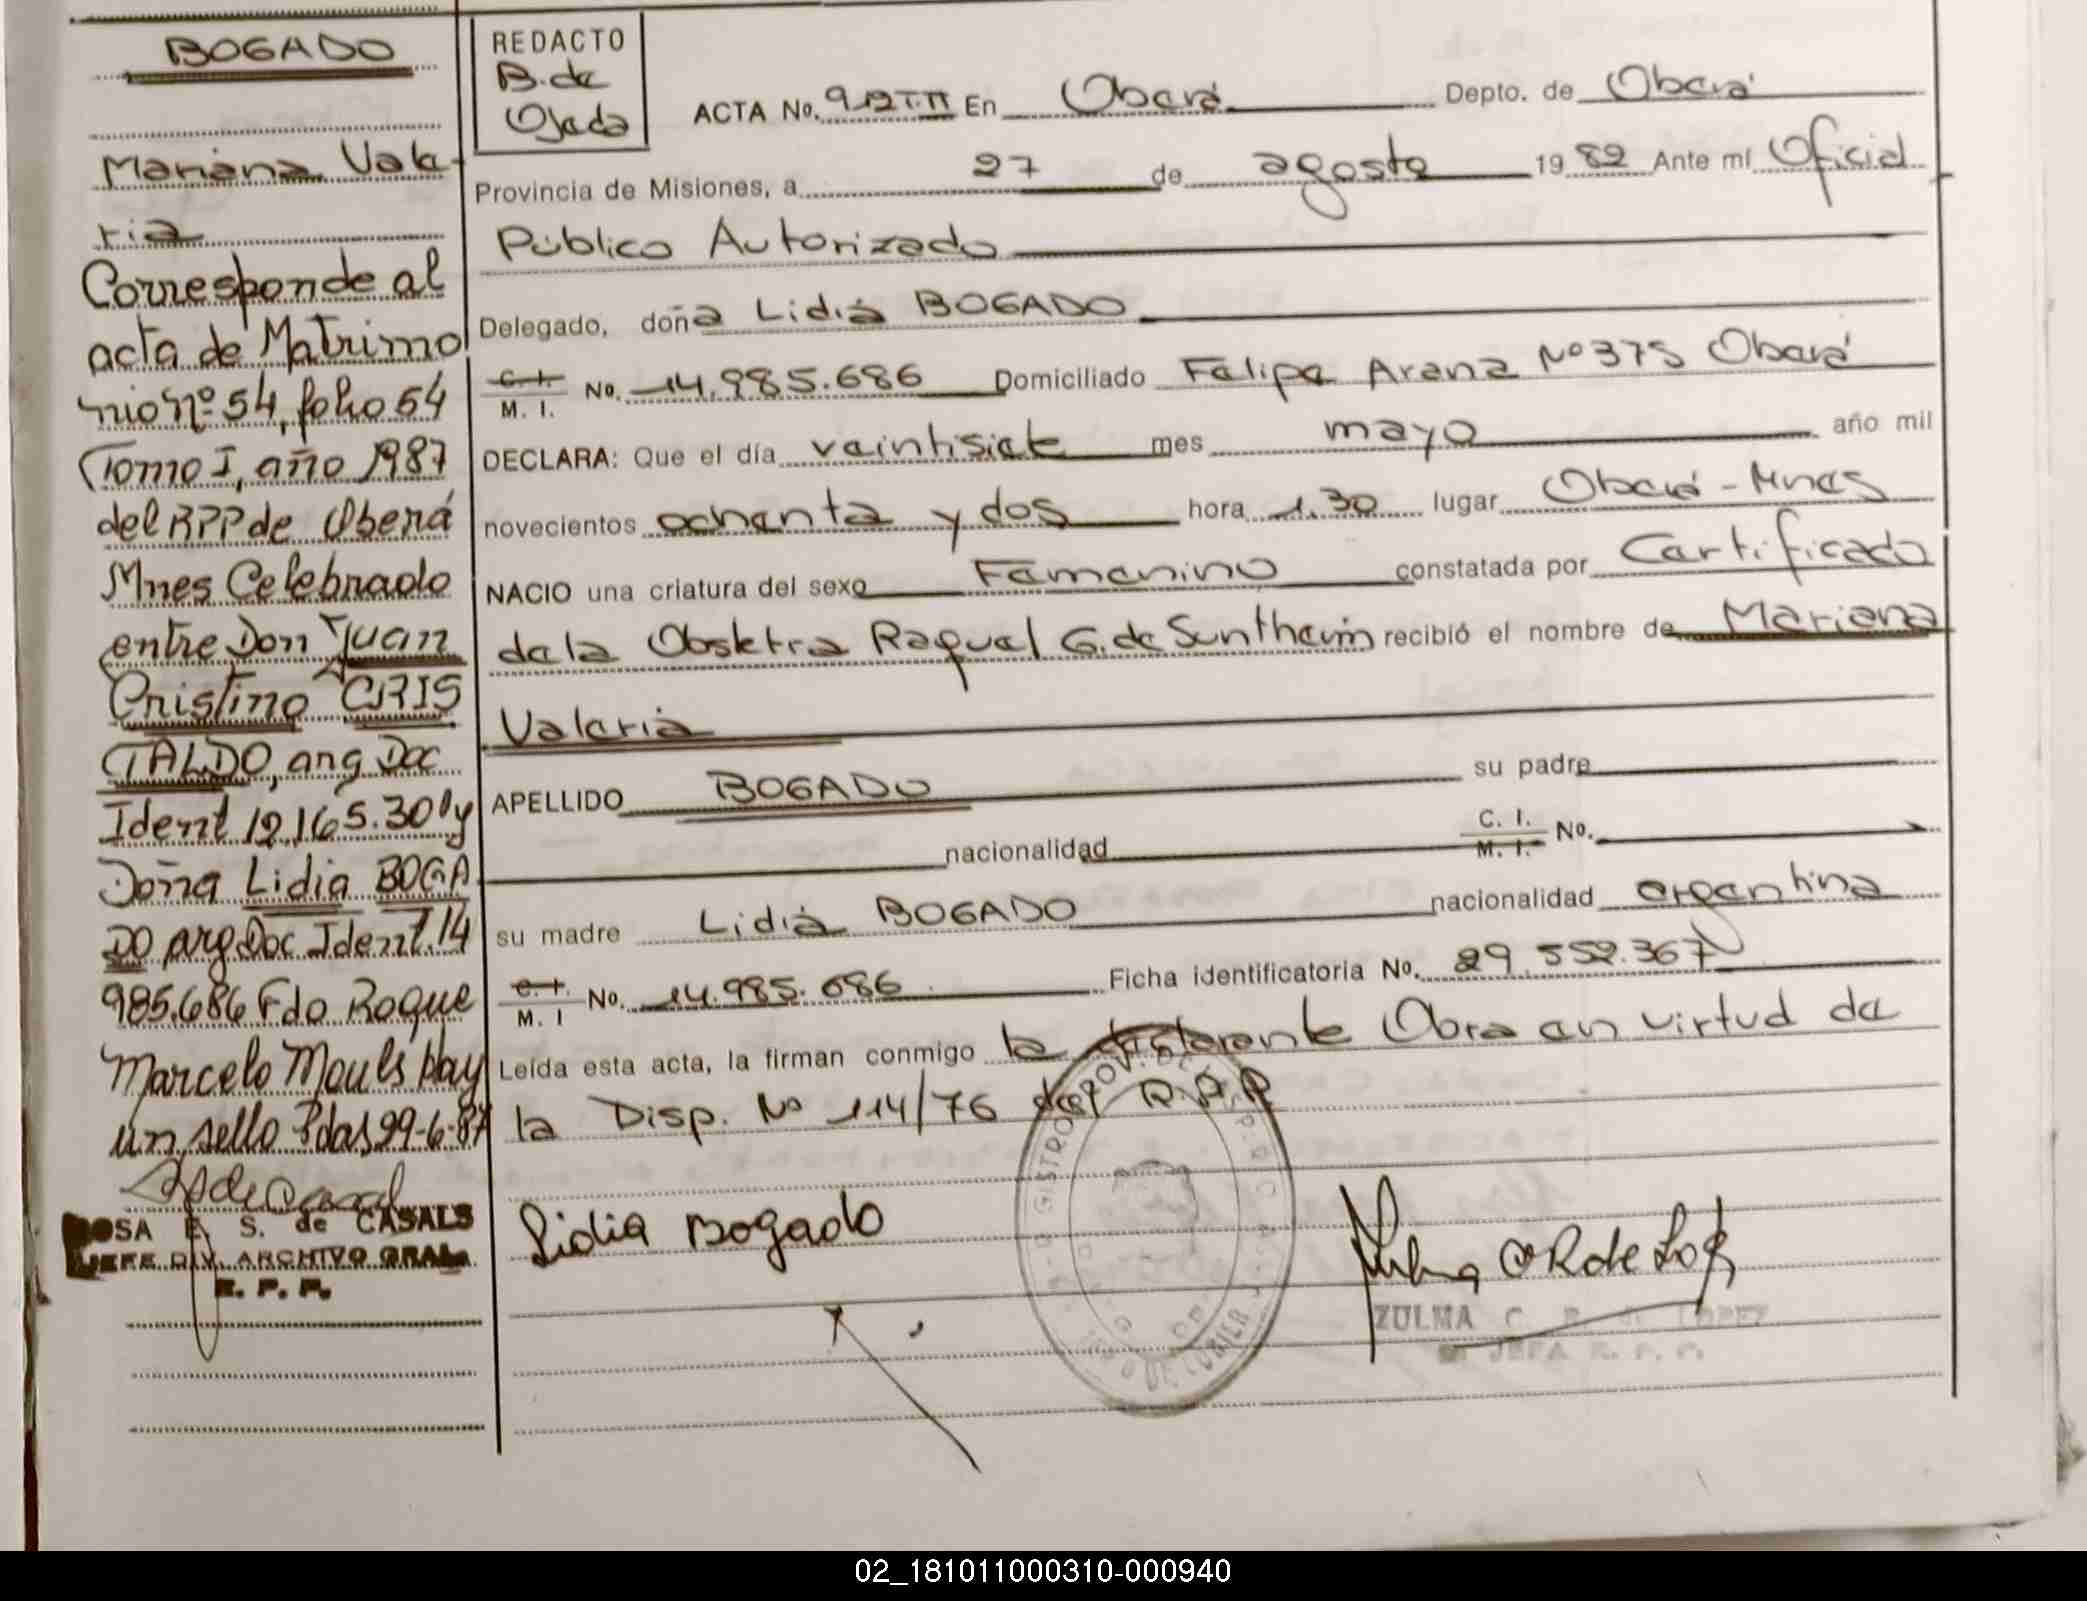 BOGADO
Mariana Vale-
ria
Corresponde al
acta de Matrimo
nio nº 54, folio 54
Tomo I, año 1987
del RPP de Oberá
Mnes Celebrado
entre Don Juan
Cristino CRIS
TALDO, arg Doc
Ident 12.165.301 y
Doña Lidia BOGA
DO arg Doc Ident. 14
985.686 Fdo Roque
Marcelo Hay
un sello Pdas 29-6-87
ROSA E. S. de CASALS
JEFE DIV. ARCHIVO GRAL.
R. P. P.
REDACTO
B. de
Ojeda
ACTA No. En Oberá Depto. de Oberá
Provincia de Misiones, a 27 de agosto 1982 Ante mí Oficial
Público Autorizado
Delegado, doña Lidia BOGADO
C. I.
M. I. No. 14.985.686 Domiciliado Felipe Arana Nº 375 Oberá
DECLARA: Que el día veintisiete mes mayo año mil
novecientos ochenta y dos hora 1.30 lugar Oberá - Mnes
NACIO una criatura del sexo Femenino constatada por Certificado
de la Obstetra Raquel G. de Suntheim recibió el nombre de Mariana
Valeria
APELLIDO BOGADO su padre
nacionalidad C. I.
M. I. No.
su madre Lidia BOGADO nacionalidad argentina
C. I.
M. I No. 14.985.686 Ficha identificatoria No. 29.552.367
Leída esta acta, la firman conmigo la declarante Obra en virtud de
la Disp. Nº 114/76 del R.P.P
Lidia Bogado
ZULMA C. R. de LOPEZ
JEFA R. P. P.
02_181011000310-000940